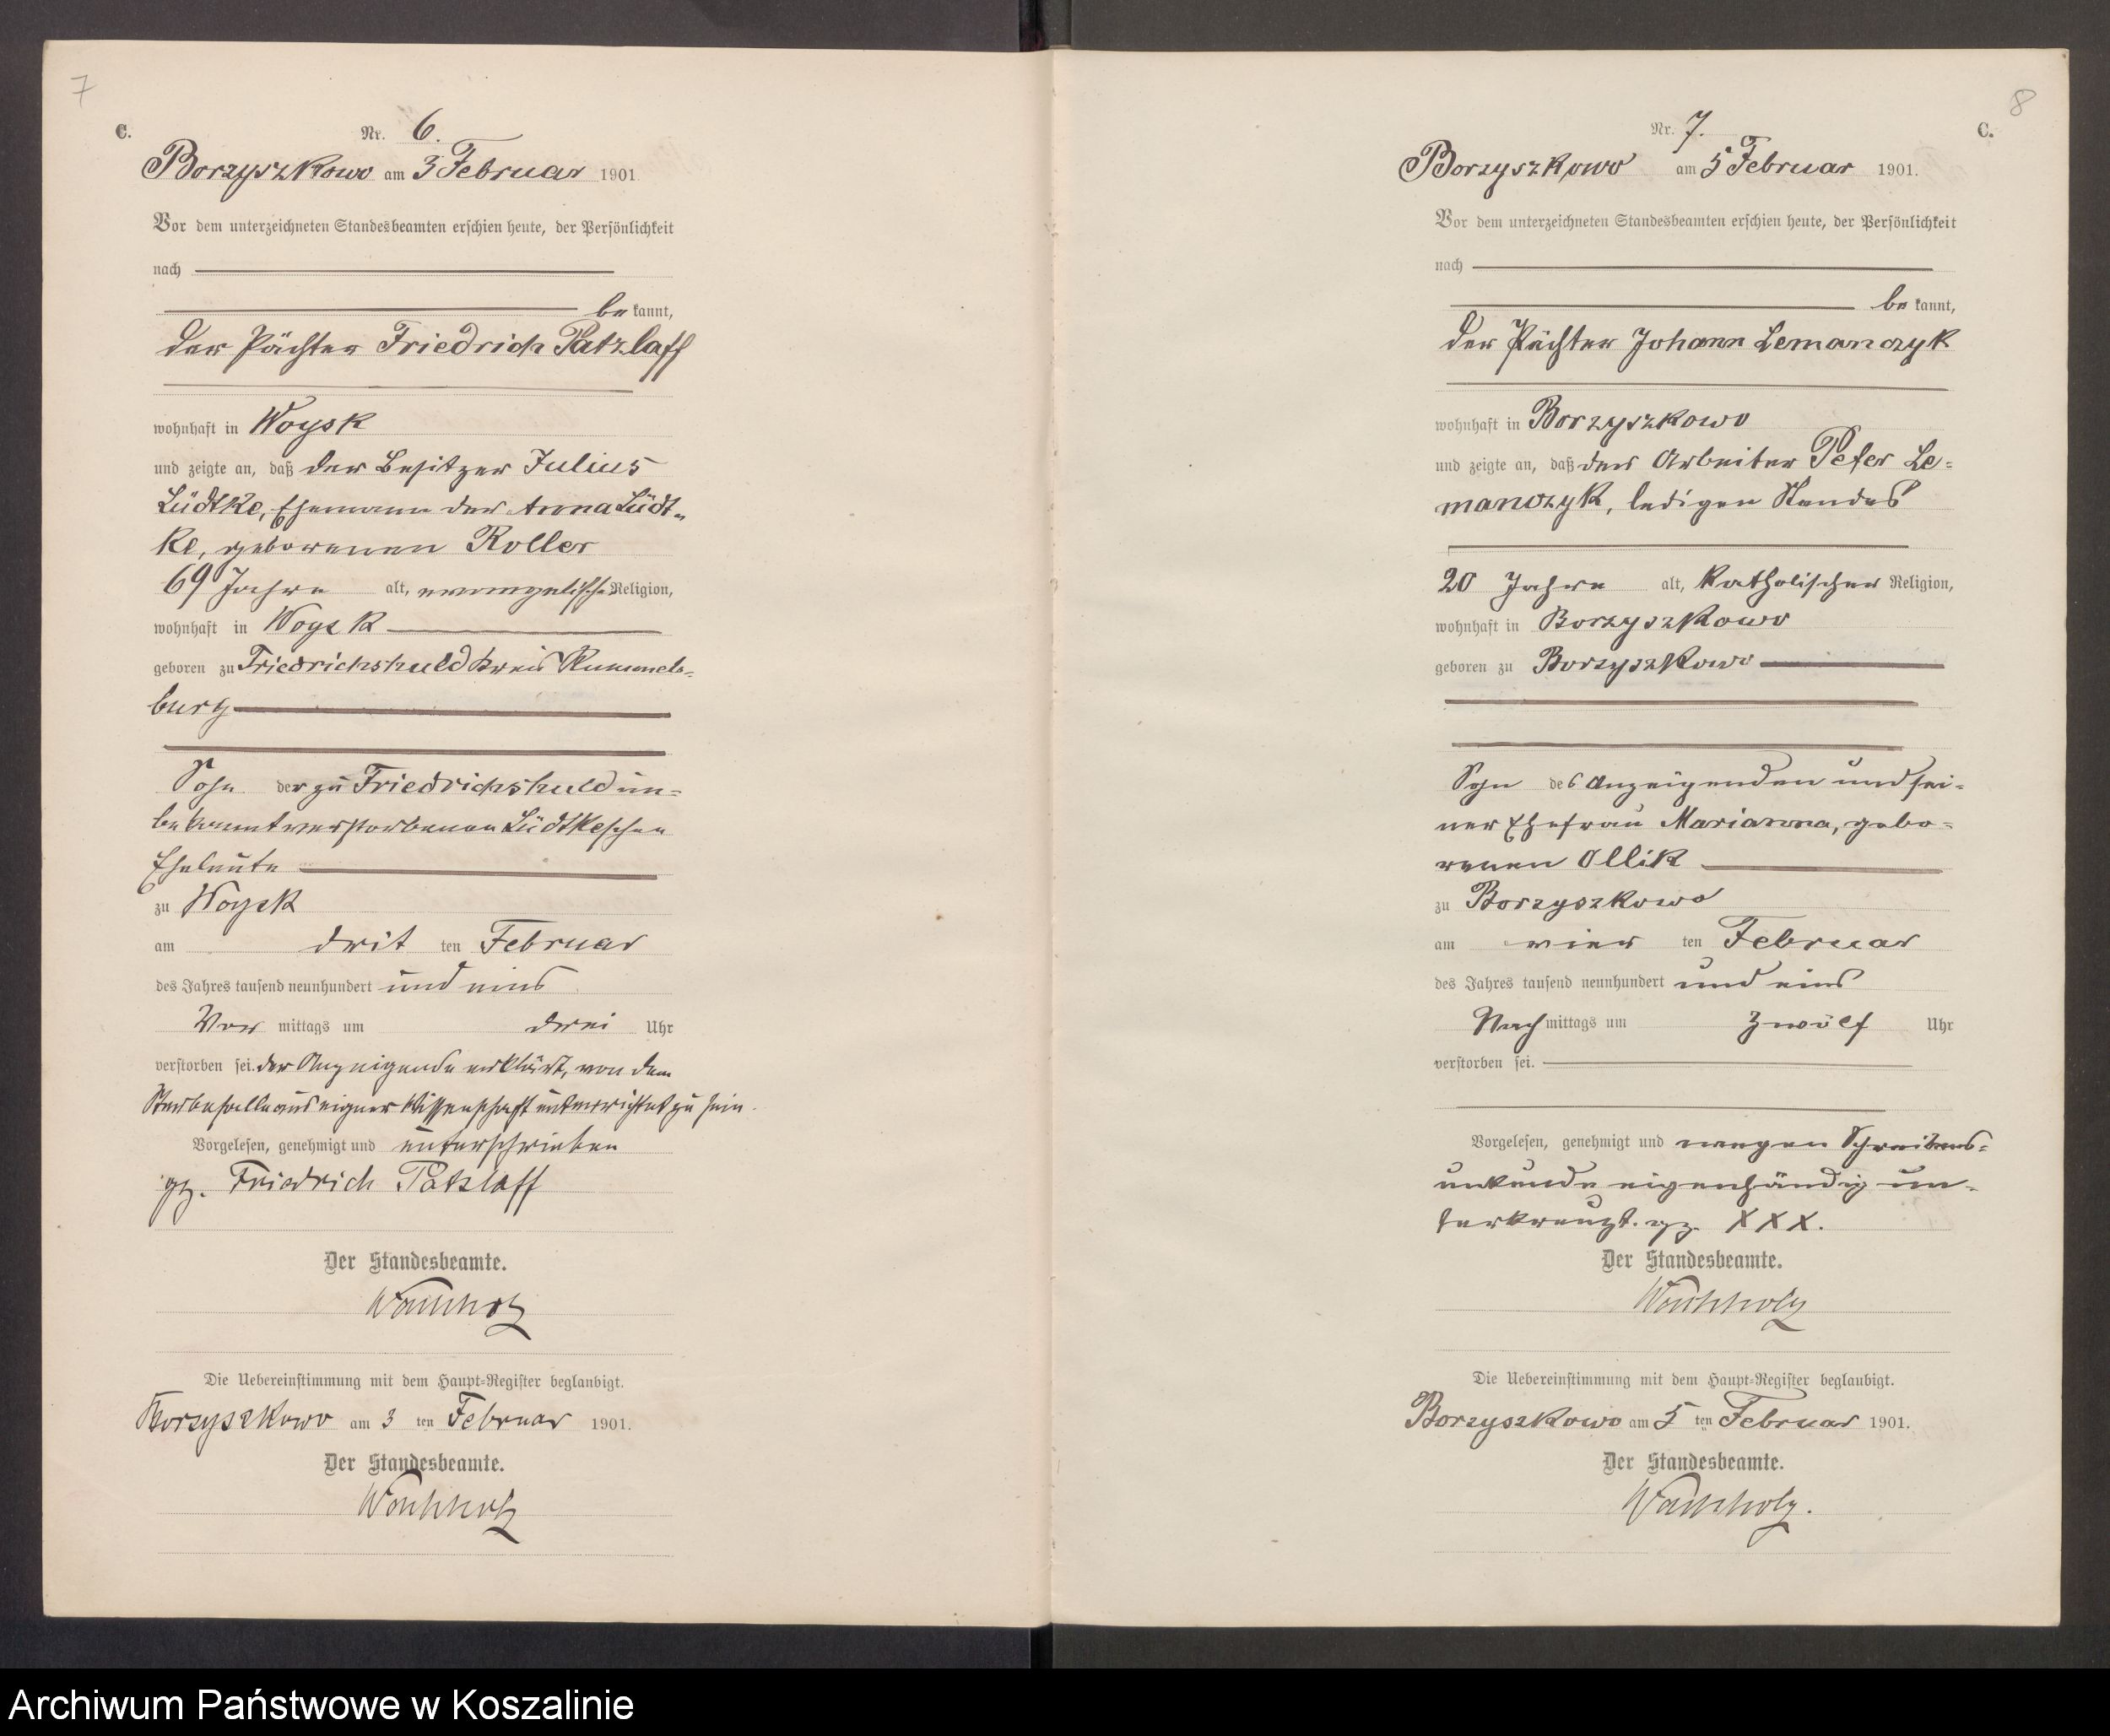 7
C.
Nr. 6.
Borzyszkowo am 3 Februar 1901.
Vor dem unterzeichneten Standesbeamten erschien heute, der Persönlichkeit
nach
be kannt,
der Pächter Friedrich Patzlaff
wohnhaft in Woysk
und zeigte an, daß der Besitzer Julius
Lüdtke, Ehemann der Anna Lüdt-
ke, geborenen Roller
69 Jahre alt, evangelische Religion,
wohnhaft in Woysk
geboren zu Friedrichshuld Kreis Rummels-
burg
Sohn der zu Friedrichshuld un-
bekannt verstorbenen Lüdtkeschen
Eheleute
zu Woysk
am drit ten Februar
des Jahres tausend neunhundert und eins
Vor mittags um drei Uhr
verstorben sei. der Anzeigende erklärt, von dem
Sterbefalle aus eigner Wissenschaft unterrichtet zu sein.
Vorgelesen, genehmigt und unterschrieben
gz. Friedrich Patzlaff
Der Standesbeamte.
Wachholz
Die Uebereinstimmung mit dem Haupt-Register beglaubigt.
Borzyszkowo am 3 ten Februar 1901.
Der Standesbeamte.
Wachholz
8
C.
Nr. 7.
Borzyszkowo am 5 Februar 1901.
Vor dem unterzeichneten Standesbeamten erschien heute, der Persönlichkeit
nach
be kannt,
der Pächter Johann Lemanczyk
wohnhaft in Borzyszkowo
und zeigte an, daß der Arbeiter Peter Le-
manczyk, ledigen Standes
20 Jahre alt, katholischer Religion,
wohnhaft in Borzyszkowo
geboren zu Borzyszkowo
Sohn des Anzeigenden und sei-
ner Ehefrau Marianna, gebo-
renen Ollik
zu Borzyszkowo
am vier ten Februar
des Jahres tausend neunhundert und eins
Nach mittags um zwölf Uhr
verstorben sei.
Vorgelesen, genehmigt und wegen Schreibens-
unkunde eigenhändig un-
terkreuzt. gz. XXX.
Der Standesbeamte.
Wachholz
Die Uebereinstimmung mit dem Haupt-Register beglaubigt.
Borzyszkowo am 5 ten Februar 1901.
Der Standesbeamte.
Wachholz.
Archiwum Państwowe w Koszalinie